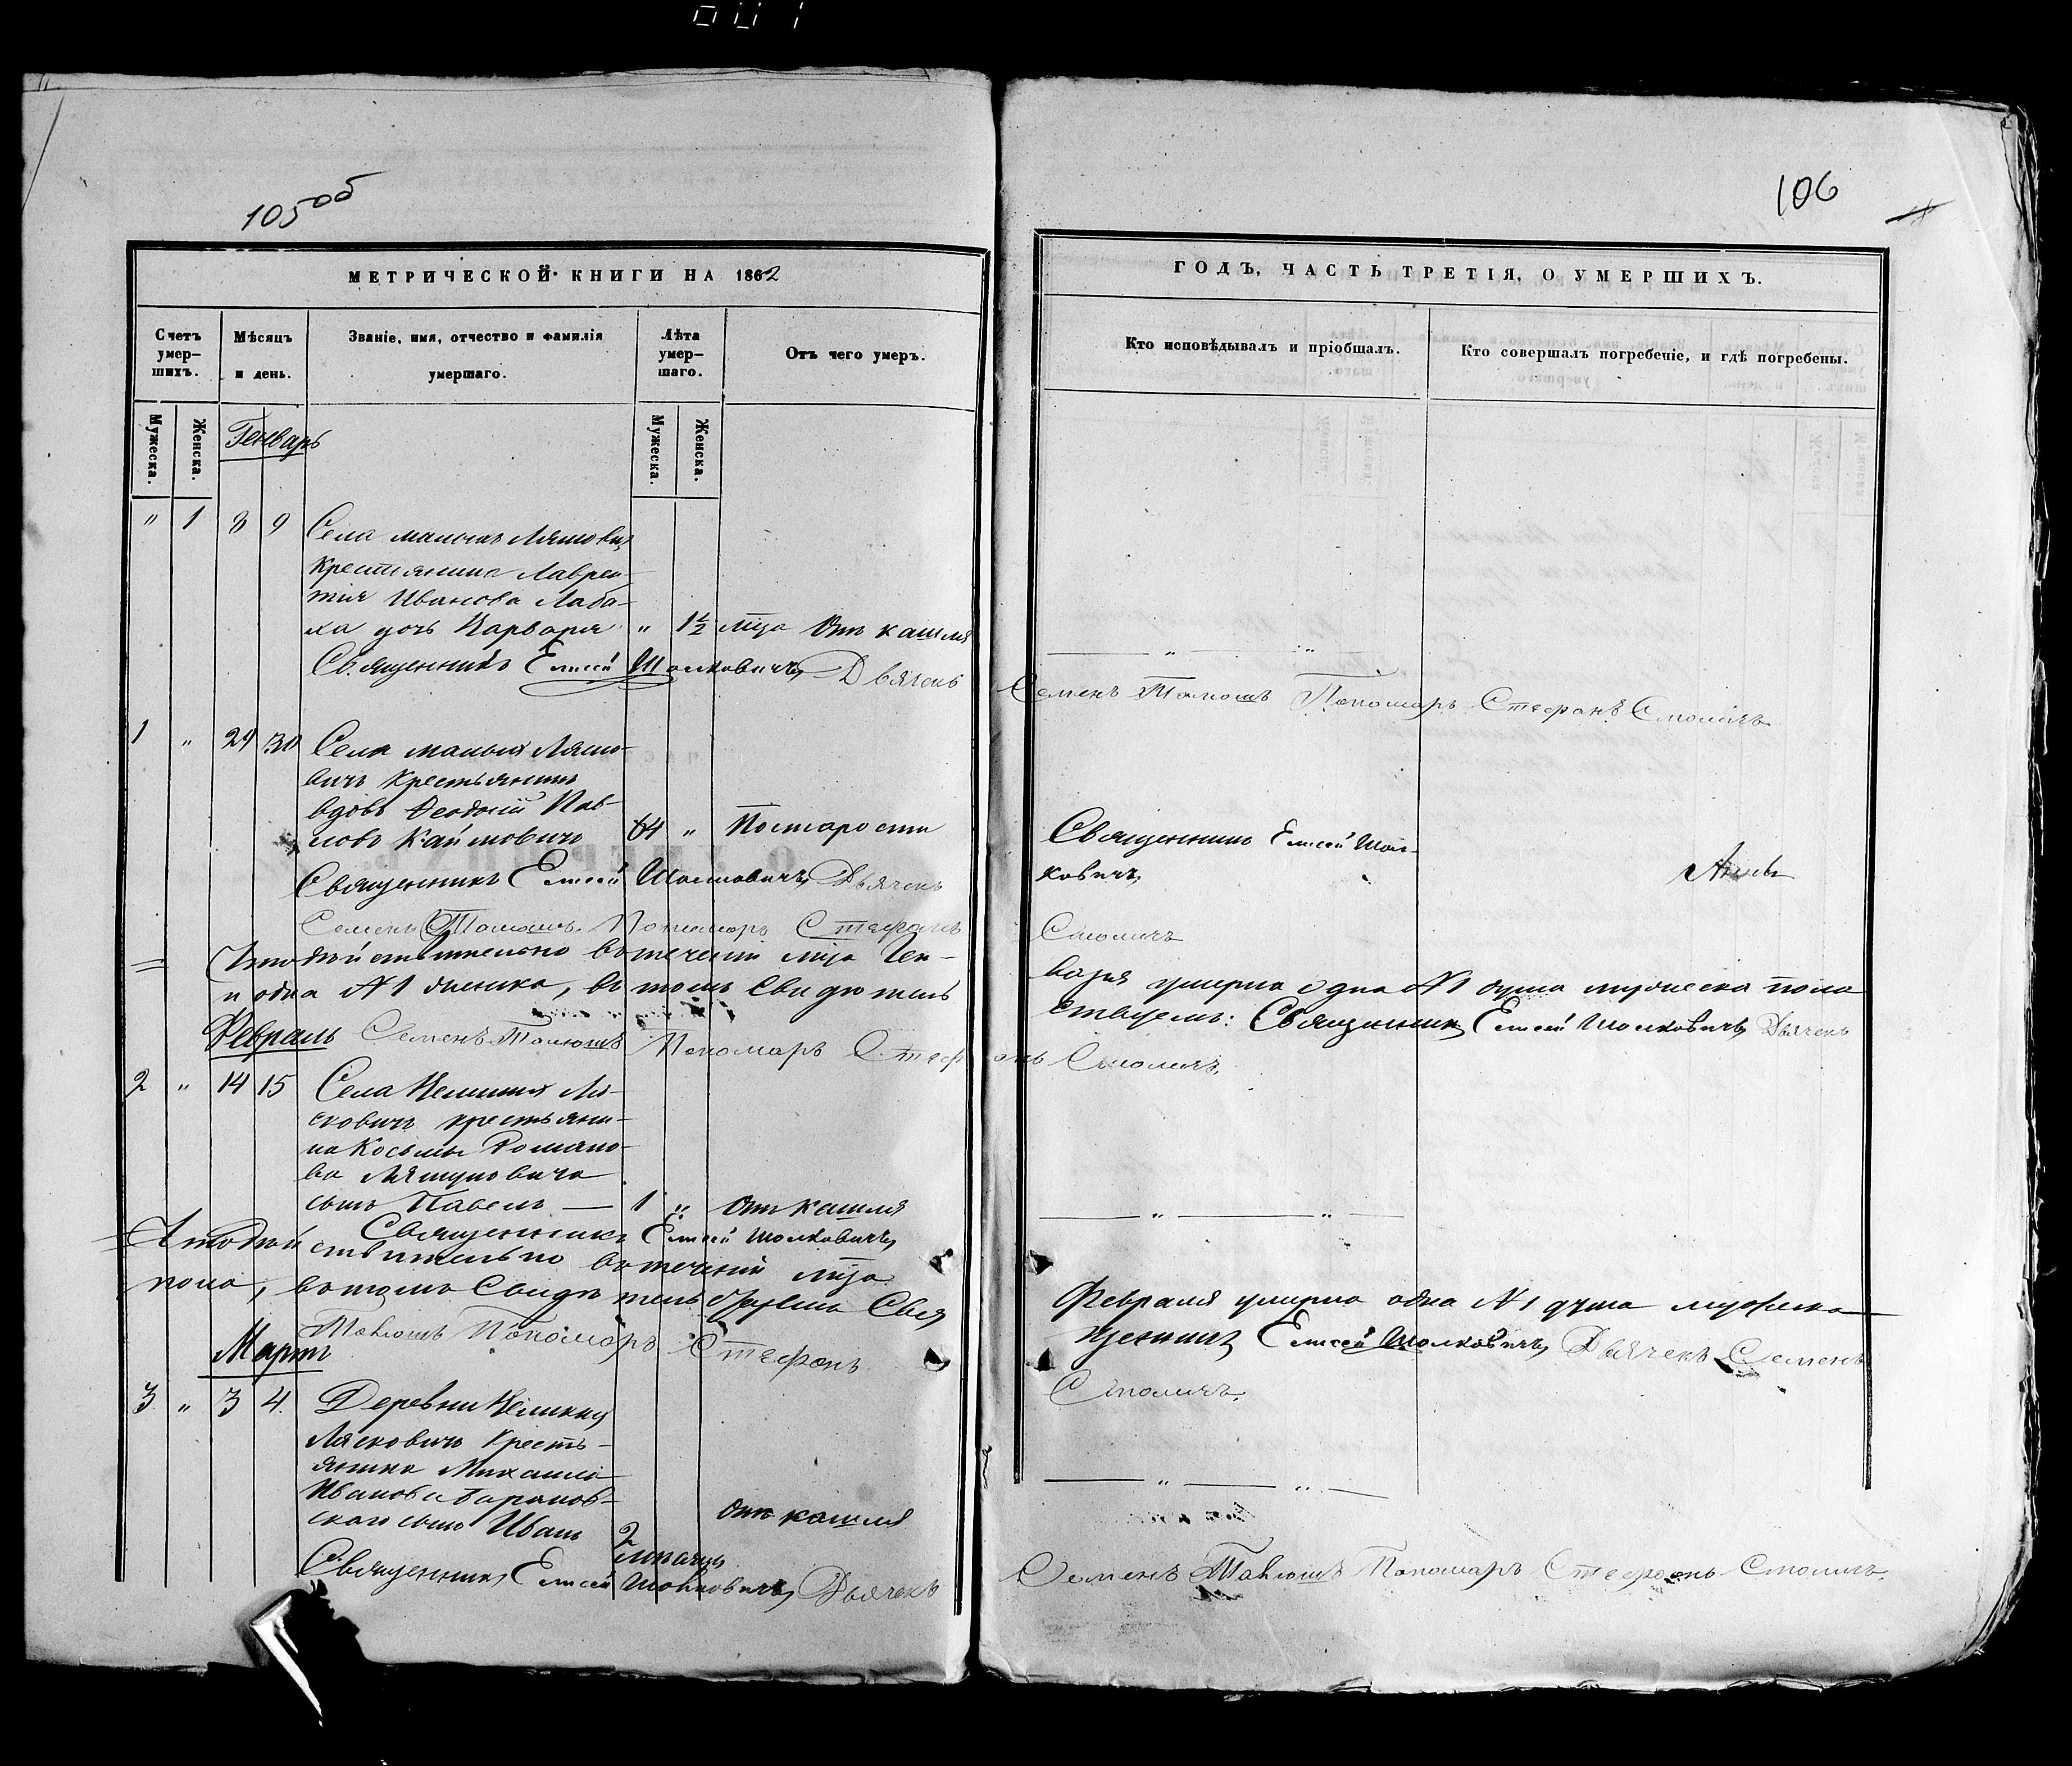 001
105 об
106
МЕТРИЧЕСКОЙ КНИГИ НА 1862
ГОДЪ, ЧАСТЬ ТРЕТІЯ, О УМЕРШИХЪ.
Счетъ умер-шихъ.
Мѣсяцъ и день.
Званіе, имя, отчество и фамилія умершаго.
Лѣта умер-шаго.
Отъ чего умеръ.
Кто исповѣдывалъ и пріобщалъ.
Кто совершалъ погребеніе, и гдѣ погребены.
Мужеска.
Женска.
Мужеска.
Женска.
Генварь
" 1 8 9 Села малыхъ Ляшовичъ
крестьянина Лаврен-
тія Иванова
дочь Варвара " 1½ лѣта Отъ кашля
Священникъ Елисей Шолковичъ Дьячекъ
Семенъ Пономаръ Стефанъ Смоличъ
1 " 29 30 Села малыхъ Ляшо-
вичъ крестьянинъ
вдовъ Феодосій Пав-
ловъ 64 " По старости
Священникъ Елисей Шол-
ковичъ
Священникъ Елисей Шолковичъ Дьячекъ
Семенъ Пономаръ Стефанъ
Смоличъ
Что дѣйствительно въ теченіи м-ца Ген-
варя умерла одна №1 душа мужеска пола
и одна №1 женска, въ томъ свидѣтель-
ствуемъ: Священникъ Елисей Шолковичъ Дьячекъ
Февраль Семенъ Пономаръ Стефанъ Смоличъ
2 " 14 15 Села Великихъ Ля-
сковичъ крестьяни-
на Косьмы Романо-
ва
сынъ Павелъ — 1 " Отъ кашля
Священникъ Елисей Шолковичъ
Что дѣйствительно въ теченіи м-ца
Февраля умерла одна №1 душа мужеска
пола, въ томъ свидѣтельствуемъ Свя
щенникъ Елисей Шолковичъ Дьячекъ Семенъ
Пономаръ Стефанъ
Смоличъ
Мартъ
3 " 3 4 Деревни Великихъ
Лясковичъ кресть-
янина Михаила
Иванова Барановскаго
сынъ Иванъ 2 Отъ кашля
Священникъ Елисей Шолковичъ Дьячекъ
Семенъ Пономаръ Стефанъ Смоличъ